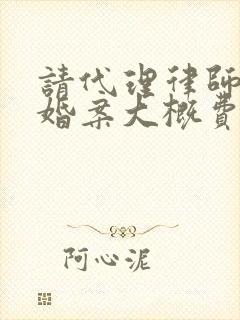 請代理律師
婚案大概費
阿心泥